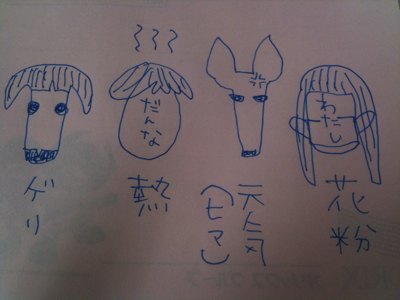 だんな
わたし
ゲリ
熱
元気
(ヒマ)
花粉